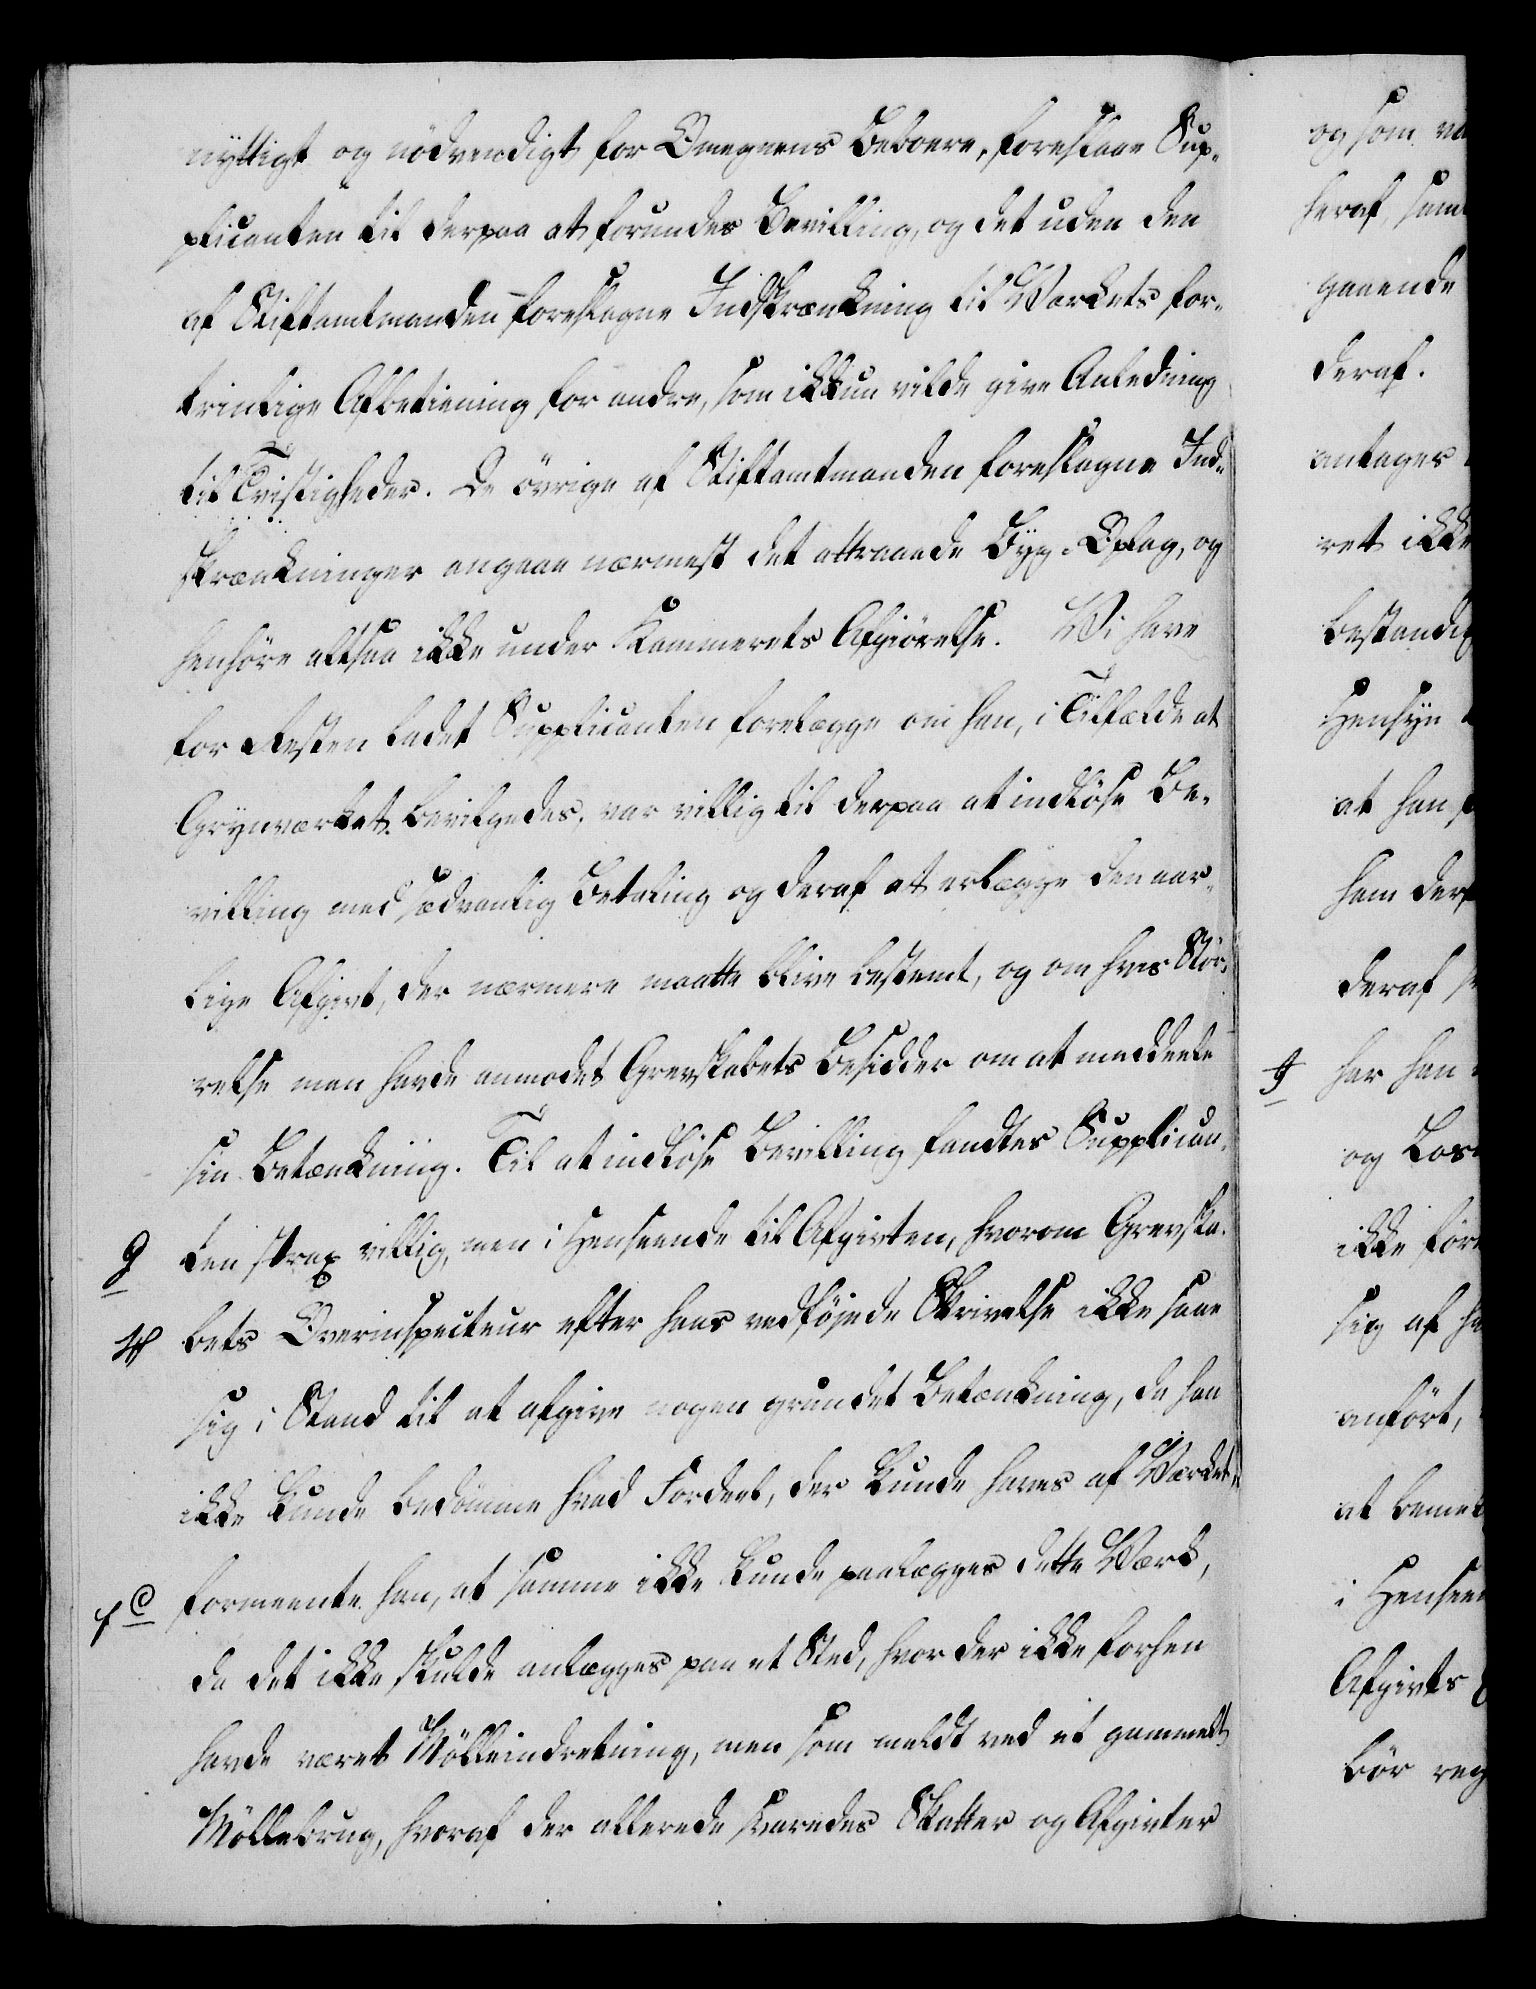 nyttigt og nödvendigt for Omegnens Beboere, foreslaae Sup-
plicanten til derpaa at forundes Bevilling, og det uden den
af Stiftamtmanden foreslagne Indskrænkning til Værkets for-
trinlige Afbetiening for andre, som ikkun vilde give Anledning
til Tvistigheder. De övrige af Stiftamtmanden foreslagne Ind-
skrænkninger angaae nærmest det attraaede Byg-Oplag, og
henhöre altsaa ikke under Kammerets Afgiörelse. Vi have
for Resten ladet Supplicanten forelægge om han, i Tilfælde at
Grynværket bevilgedes, var villig til derpaa at indlöse Be-
villing med sædvanlig Betaling og deraf at erlægge den aar-
lige Afgivt, der nærmere maatte blive bestemt, og om hvis Stör-
relse man havde anmodet Grevskabets Besidder om at meddeele
sin Betænkning. Til at indlöse Bevilling fandtes Supplican-
g ten strax villig, men i Henseende til Afgivten, hvorom Grevska-
bets Overinspecteur efter hans vedföjede Skrivelse ikke saae
sig i Stand til at afgive nogen grundet Betænkning, da han
ikke kunde bedömme hvad Fordeel, der kunde haves af Værket,
f c formeente han, at samme ikke kunde paalægges dette Værk,
da det ikke skulde anlægges paa et Sted, hvor der ikke forhen
havde været Mölleindretning, men som meldt ved et gammelt
Möllebrug, hvoraf der allerede svaredes Skatter og Afgivter
og som
heraf, sam
gaaende
deraf.
antages
ret ikke
bestandig
Hensyn
at han
ham derp
deraf
har han
og
ikke för
sig af
anfört,
at
i Henseen
Afgivts
bör reg